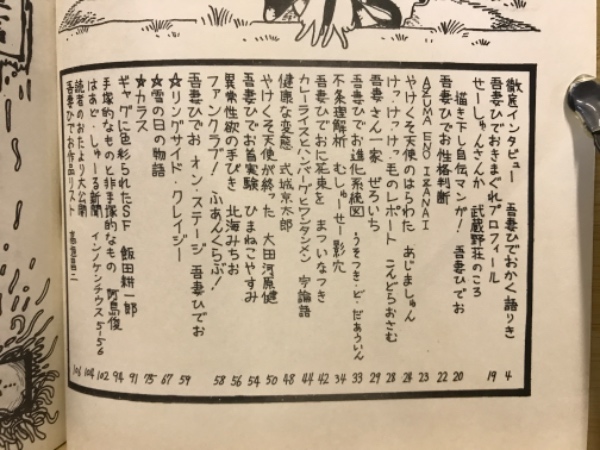 徹底インタビュー 吾妻ひでおかく語りき 4
吾妻ひでおきまぐれプロフィール 19
せーしゅんさんか 武蔵野荘のころ
描き下し自伝マンガ! 吾妻ひでお 20
吾妻ひでお性格判断 22
AZUMA ENO IZANAI 23
やけくそ天使のはらわた あじましゅん 24
けッけッけッ毛のレポート こんどらおさむ 28
吾妻さん一家 ぜろいち 29
吾妻ひでお進化系統図 うそつき・ど・だあういん 33
不条理解析 むしゅーせー影穴 34
吾妻ひでおに花束を まついなつき 42
カレーライスとハンバーグとワンタンメン 宇論語 44
健康な変態 式城京太郎 48
やけくそ天使が終った 大田河原健 50
吾妻ひでお首実験 ひまねこやすみ 54
異常性欲の手びき 北海みちお 56
ファンクラブ! ふあんくらぶ! 58
吾妻ひでお オン・ステージ 吾妻ひでお
☆リングサイド・クレイジー 59
☆雪の日の物語 67
☆カラス 75
ギャグに色彩られたSF 飯田耕一郎 91
手塚的なものと非手塚的なもの 阿島俊 94
はあど・しゅーる新聞 インノケンチウス5-56 102
読者のおたより大公開 104
吾妻ひでお作品リスト 106